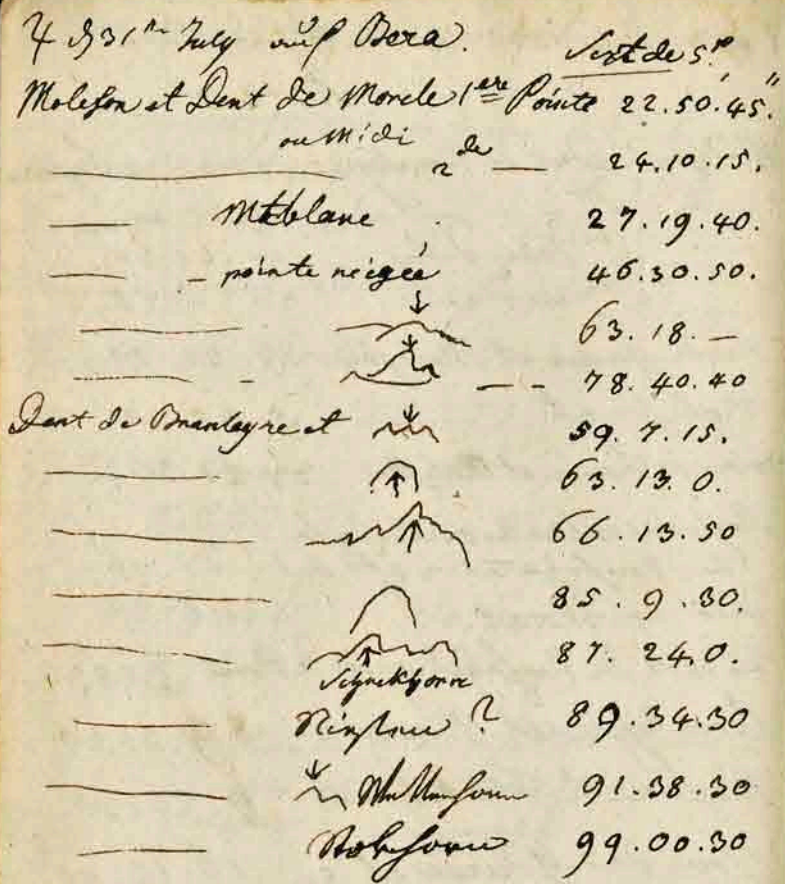 ♃ d 31ten July auf Bera.
Sext de 5p.
Moleson et Dent de Morcle 1ere Pointe 22.50'.45".
ou Midi
2de — 24.10.15.
Mtblanc 27.19.40.
— pointe neigée 46.30.50.
63.18.—
— — — 78.40.40
Dent de Branleyre et 59.7.15.
63.13.0.
66.13.50
85.9.30.
87.24.0.
Schrekhorn
? 89.34.30
91.38.30
Stokhorn 99.00.30